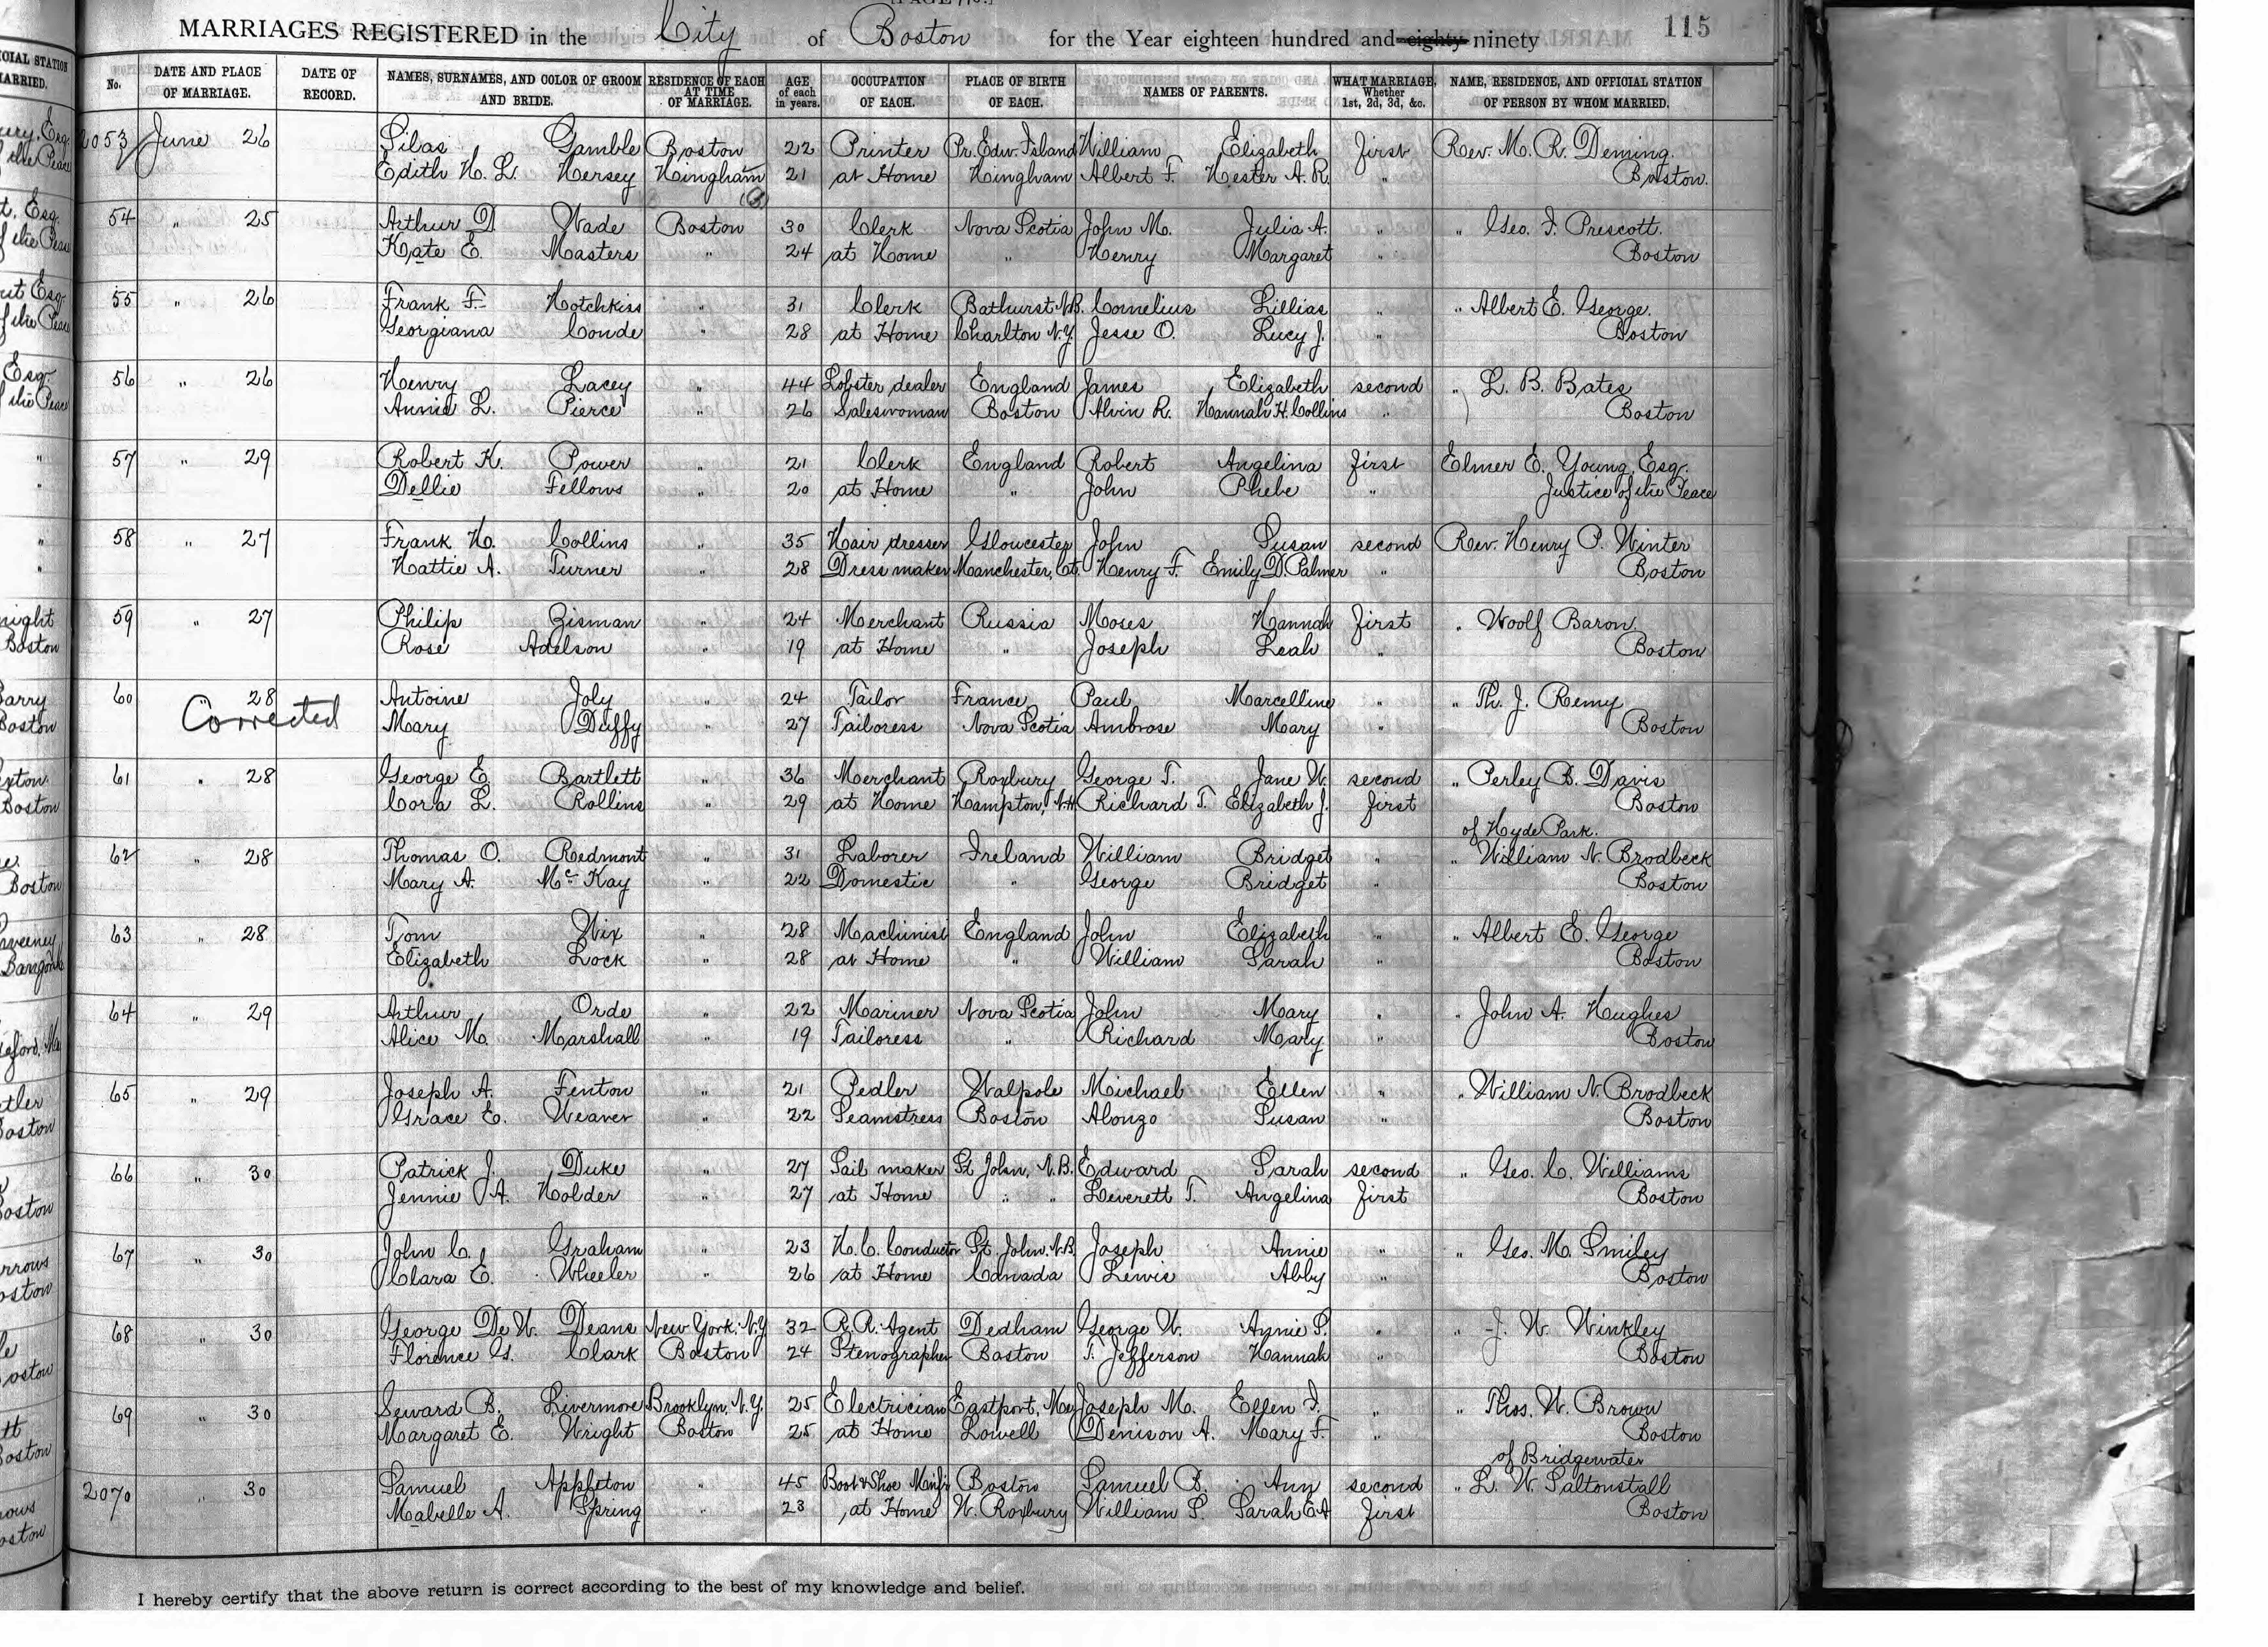 MARRIAGES REGISTERED in the City of Boston for the Year eighteen hundred and eighty ninety 115
No. DATE AND PLACE OF MARRIAGE. DATE OF RECORD. NAMES, SURNAMES, AND COLOR OF GROOM AND BRIDE. RESIDENCE OF EACH AT TIME OF MARRIAGE. AGE of each in years. OCCUPATION OF EACH. PLACE OF BIRTH OF EACH. NAMES OF PARENTS. WHAT MARRIAGE, Whether 1st, 2d, 3d, &c. NAME, RESIDENCE, AND OFFICIAL STATION OF PERSON BY WHOM MARRIED.
2053 June 26 Silas Gamble Boston 22 Printer Pr. Edw. Island William Elizabeth first Rev. M. R. Deming.
Edith H. L. Hersey Hingham 21 at Home Hingham Albert F. Hester A. R. " Boston.
54 " 25 Arthur D Wade Boston 30 Clerk Nova Scotia John M. Julia A. " " Geo. F. Prescott.
Kate E. Masters " 24 at Home " Henry Margaret " Boston
55 " 26 Frank F. Hotchkiss " 31 Clerk Bathurst N.B. Cornelius Lillias " " Albert E. George.
Georgiana Conde " 28 at Home Charlton N.Y. Jesse O. Lucy J. " Boston
56 " 26 Henry Lacey " 44 Lobster dealer England James Elizabeth second " L. B. Bates
Annie L. Pierce " 26 Saleswoman Boston Alvin R. Hannah H. Collins " Boston
57 " 29 Robert K. Power " 21 Clerk England Robert Angelina first Elmer E. Young, Esq.
Dellie Fellows " 20 at Home " John Phebe " Justice of the Peace
58 " 27 Frank H. Collins " 35 Hair dresser Gloucester John Susan second Rev. Henry P. Winter
Hattie A. Turner " 28 Dress maker Manchester, Ct. Henry F. Emily D. Palmer " Boston
59 " 27 Philip Zisman " 24 Merchant Russia Moses Hannah first " Woolf Baron
Rose Adelson " 19 at Home " Joseph Leah " Boston
60 " 28 Antoine Joly " 24 Tailor France Paul Marcelline " " Th. J. Remy
Corrected Mary Duffy " 27 Tailoress Nova Scotia Ambrose Mary " Boston
61 " 28 George E. Bartlett " 36 Merchant Roxbury George T. Jane W. second " Perley B. Davis
Cora L. Rollins " 29 at Home Hampton, N.H. Richard T. Elizabeth J. first Boston
of Hyde Park.
62 " 28 Thomas O. Redmont " 31 Laborer Ireland William Bridget " " William N. Brodbeck
Mary A. McKay " 22 Domestic " George Bridget " Boston
63 " 28 Tom Wix " 28 Machinist England John Elizabeth " " Albert E. George
Elizabeth Lock " 28 at Home " William Sarah " Boston
64 " 29 Arthur Orde " 22 Mariner Nova Scotia John Mary " " John A. Hughes
Alice M. Marshall " 19 Tailoress " Richard Mary " Boston
65 " 29 Joseph A. Fenton " 21 Pedler Walpole Michael Ellen " " William N. Brodbeck
Grace E. Weaver " 22 Seamstress Boston Alonzo Susan " Boston
66 " 30 Patrick J. Duke " 27 Sail maker St John, N.B. Edward Sarah second " Geo. C. Williams
Jennie A. Holder " 27 at Home " " Leverett T. Angelina first Boston
67 " 30 John C. Graham " 23 H. C. Conductor St. John. N.B. Joseph Annie " " Geo. M. Smiley
Clara E. Wheeler " 26 at Home Canada Lewis Abby " Boston
68 " 30 George De W. Deans New York, N.Y. 32 R. R. Agent Dedham George W. Annie S. " " J. W. Winkley
Florence G. Clark Boston 24 Stenographer Boston T. Jefferson Hannah " Boston
69 " 30 Seward B. Livermore Brooklyn, N.Y. 25 Electrician Eastport, Me Joseph M. Ellen I. " " Thos. W. Brown
Margaret E. Wright Boston 25 at Home Lowell Denison A. Mary F. " Boston
of Bridgewater
2070 " 30 Samuel Appleton " 45 Boot & Shoe Manfr Boston Samuel B. Ann second " L. W. Saltonstall
Mabelle A. Spring " 23 at Home W. Roxbury William S. Sarah E A first Boston
I hereby certify that the above return is correct according to the best of my knowledge and belief.